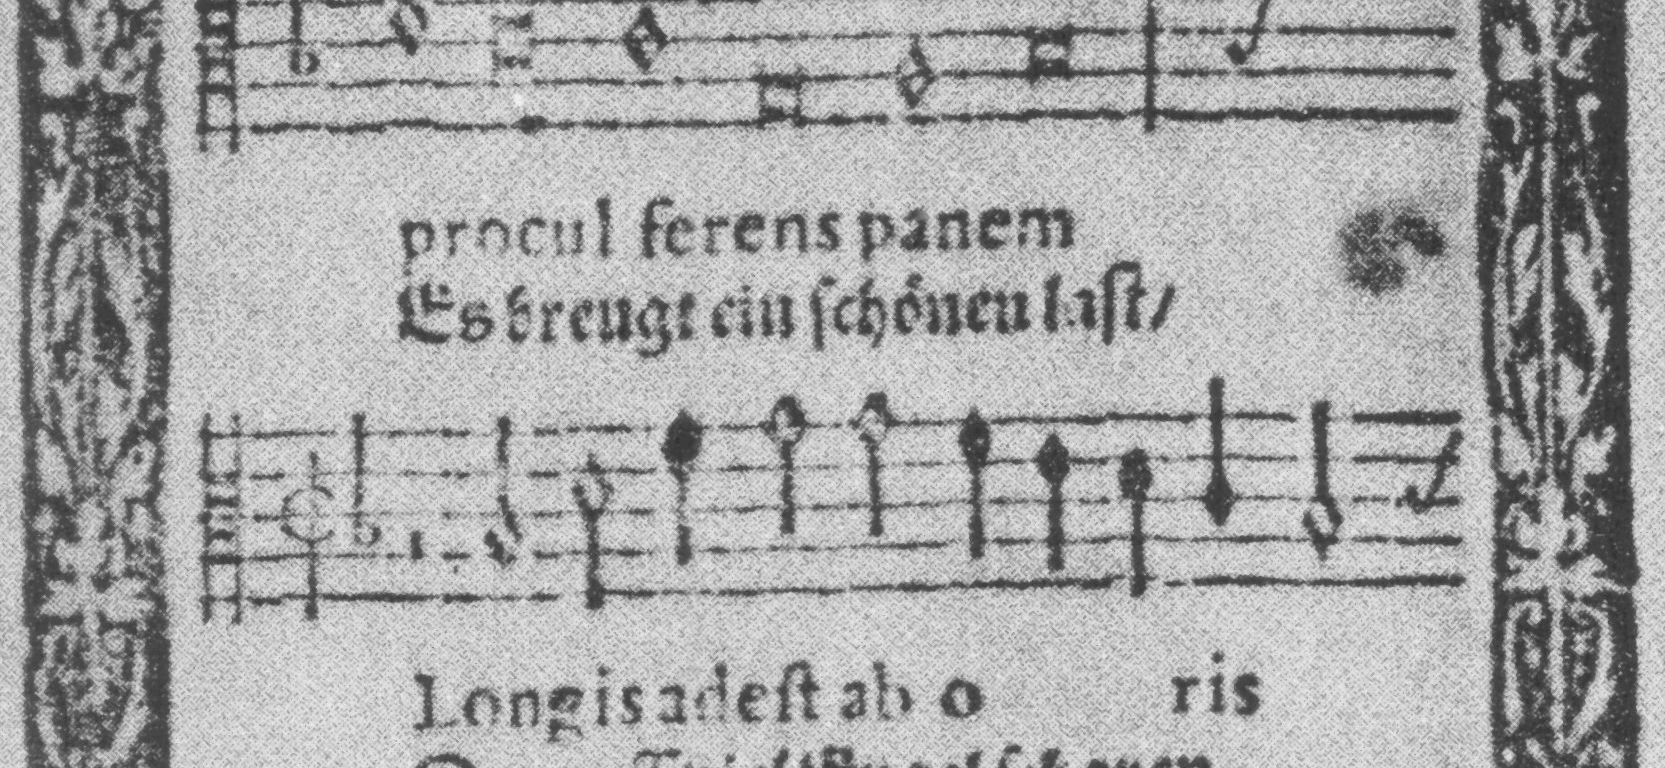 procul ferens panem
Es breugt ein schönen last/
Longis adest ab o ris